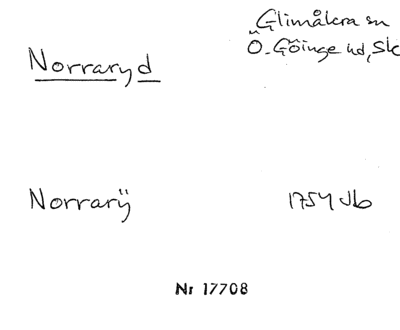 Norraryd
Glimåkra sn
Ö. Göinge hd, Sk
Norrarÿ
1754 Jb
Nr 17708